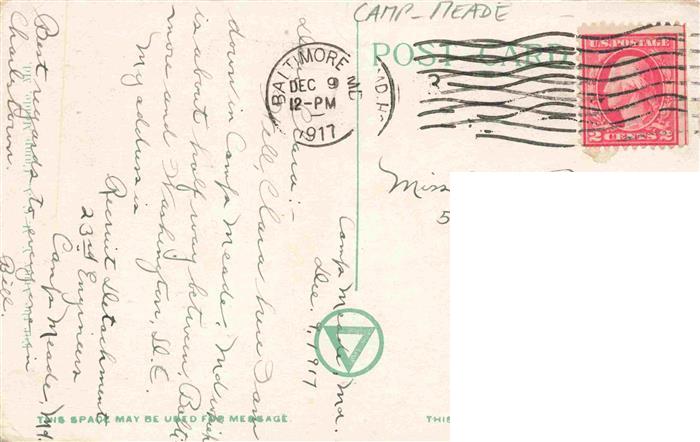 CAMP MEADE
POST CARD
BALTIMORE MD
DEC 9
12-PM
1917
U.S. POSTAGE
2 CENTS 2
Miss
5
Camp Meade, Md.
Dec. 9, 1917
Dear Clara:-
Well, Clara here I am
down in Camp Meade, Md which
is about half way between Balti
more and Washington, D.C.
My address is
Recruit Detachment
23rd Engineers
Camp Meade, Md.
Best regards to everyone in
Charlestown.
Bill.
THIS SPACE MAY BE USED FOR MESSAGE.
THIS